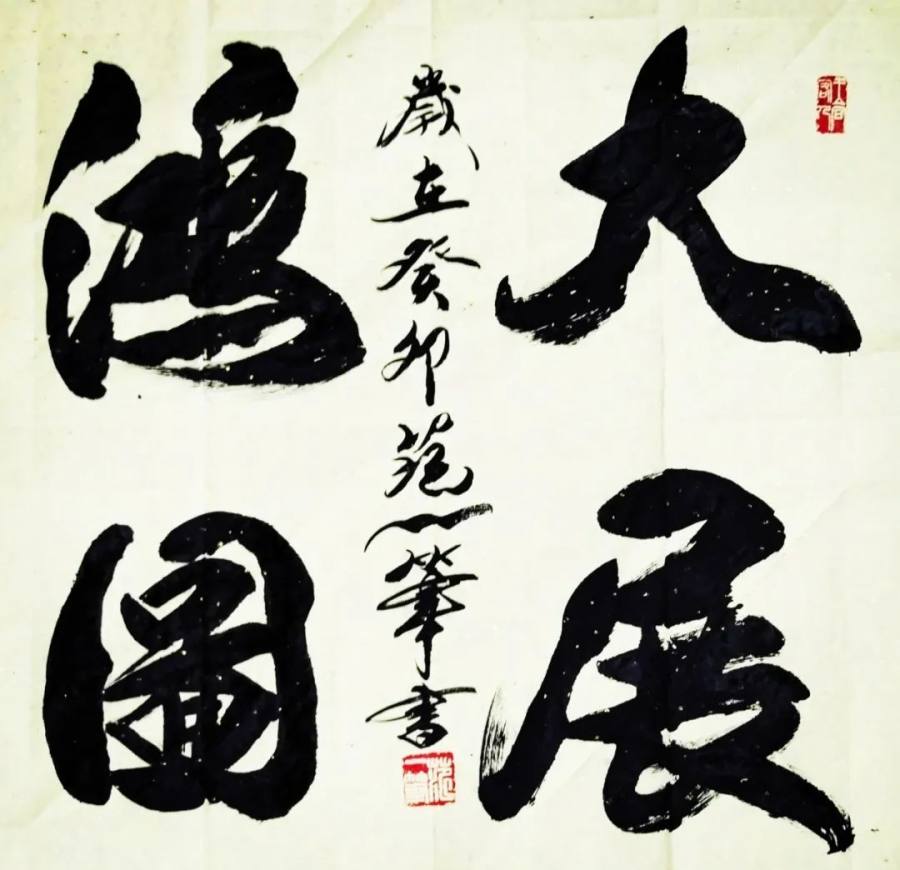 大展
鴻圖
歲在癸卯范一筆書